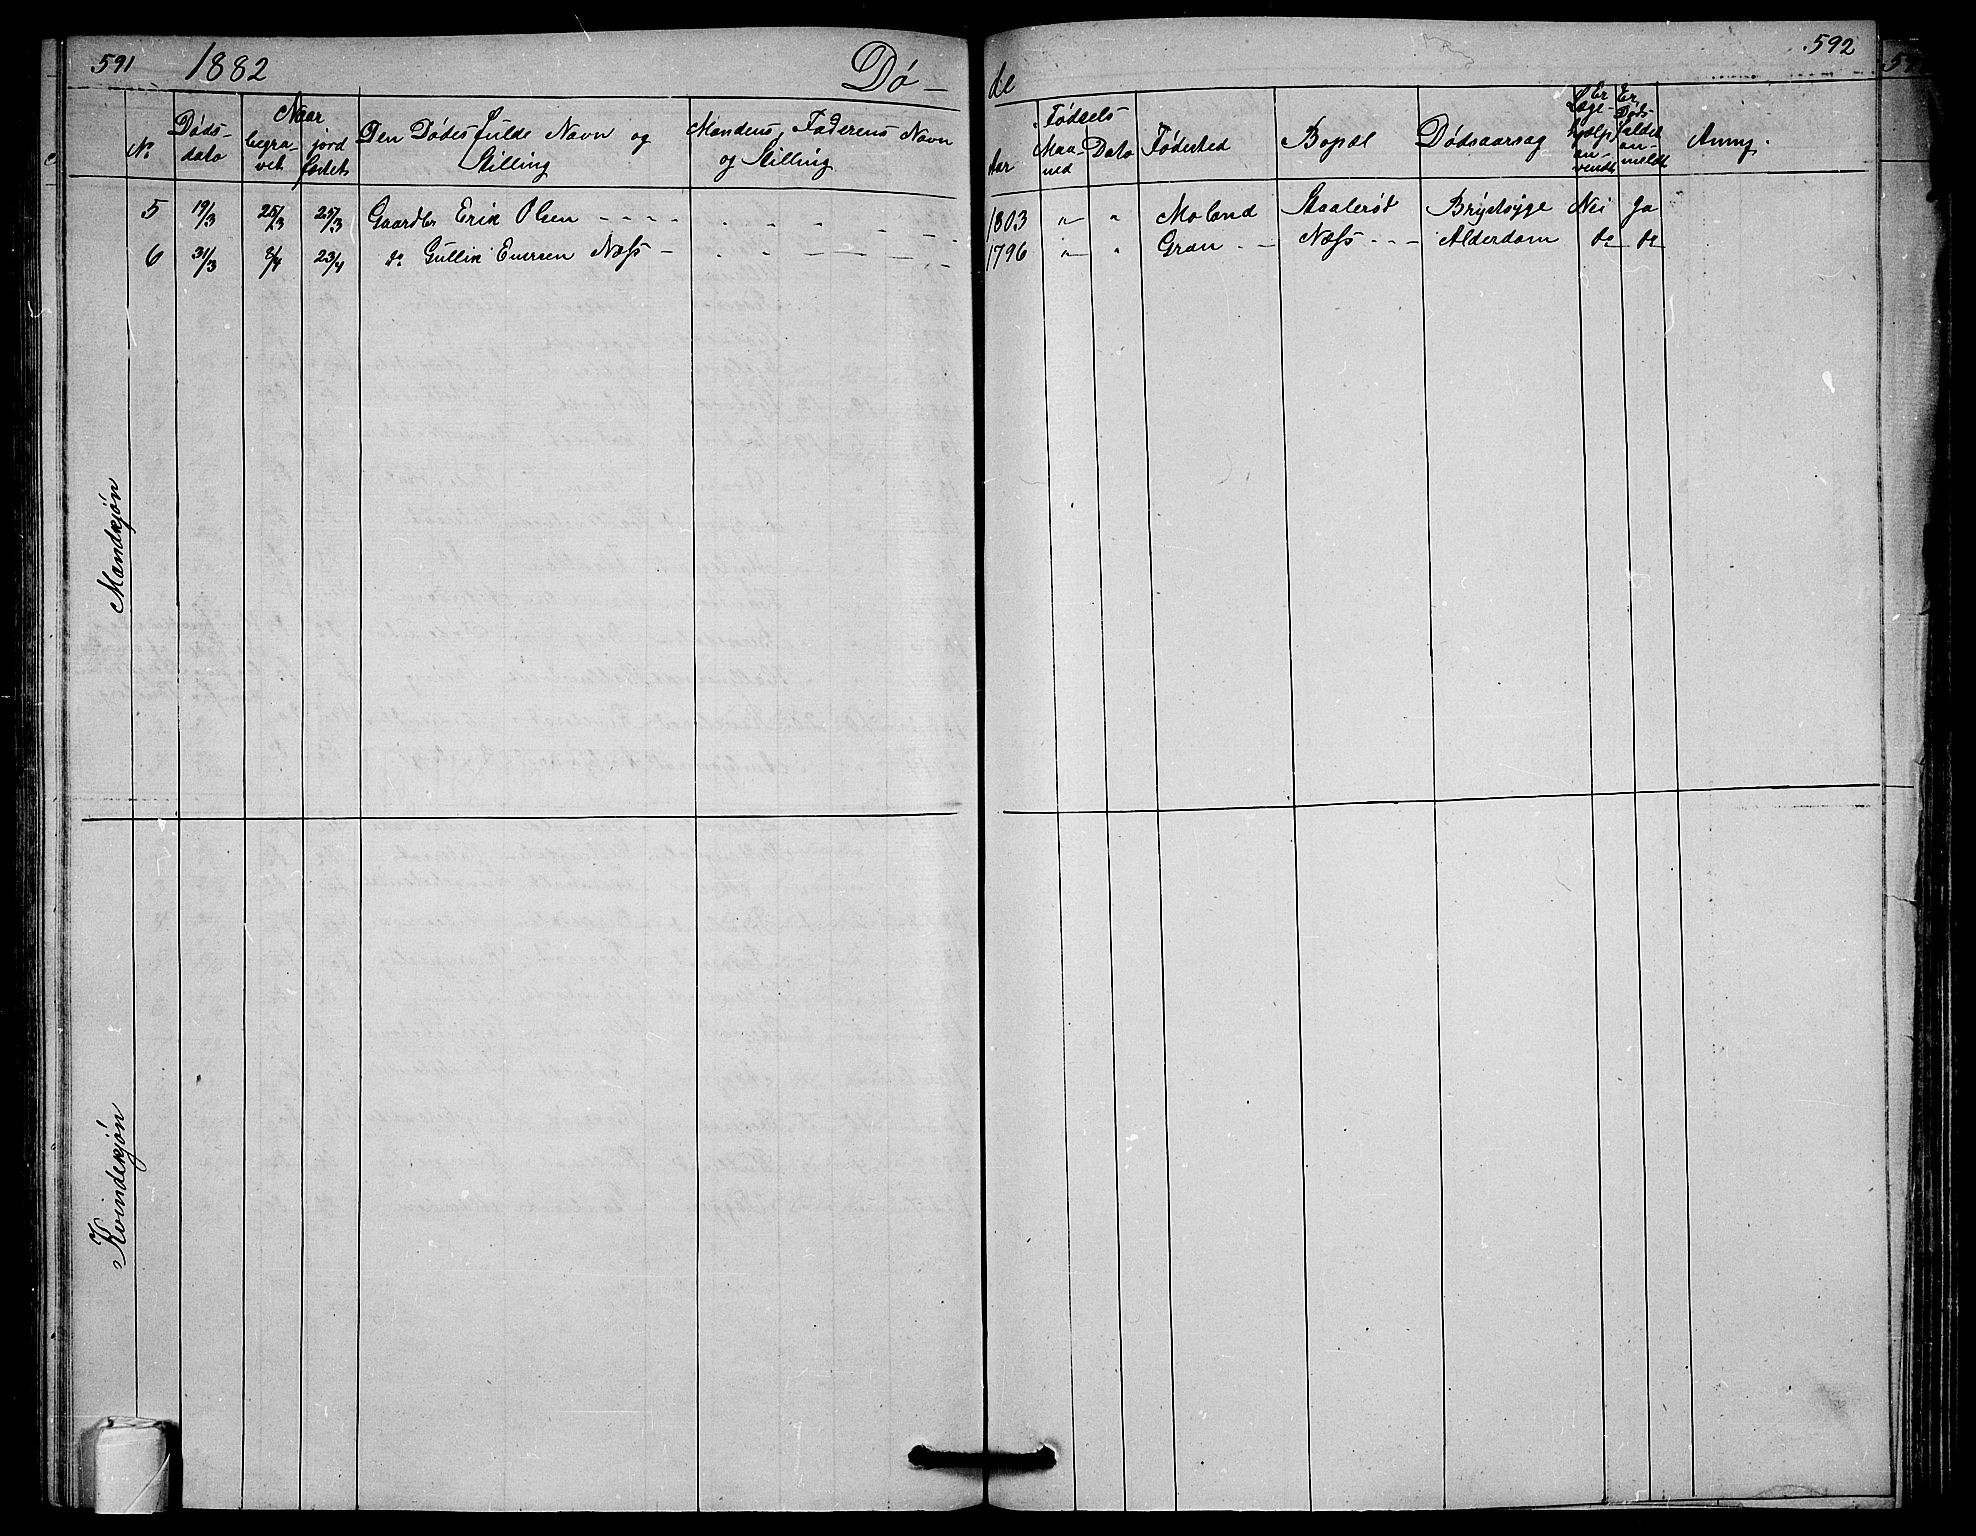 591 1882 Dø- de 592
No
Døds-
dato
Naar
begra-
vet
jord
fæstet
Den Dødes fulde Navn og
Stilling
Mandens, Faderens Navn
og Stilling
Fødsels
Aar
Maa-
ned
Dato
Fødested
Bopæl
Dødsaarsag
Er
Læge-
hjælp
an-
vendt
Er
Døds-
faldet
an-
meldt
Anmg.
Mandkjøn
5 19/3 25/3 25/3 Gaardbr Erik Olsen - - - - 1803 " " Moland Staalerød Brystsyge Nei Ja
6 31/3 8/4 23/4 do Gullik Eversen Næss - 1796 " " Gran - - Næss - - - Alderdom do do
Kvindekjøn